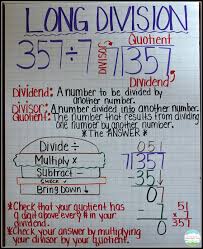 LONG DIVISION
357÷7
Quotient
DIVISOR
7)357
Dividend
Dividend: A number to be divided by
another number.
Divisor: A number divided into another number.
Quotient: The number that results from dividing
one number by another number.
*The ANSWER*
Divide ÷
Multiply ×
Subtract -
CHECK ✓
Bring Down ↓
051
7)357
-35↓
07
-7
0
51
×7
357
*Check that your quotient has
a digit above every # in your
dividend.
*Check your answer by multiplying
your divisor by your quotient.